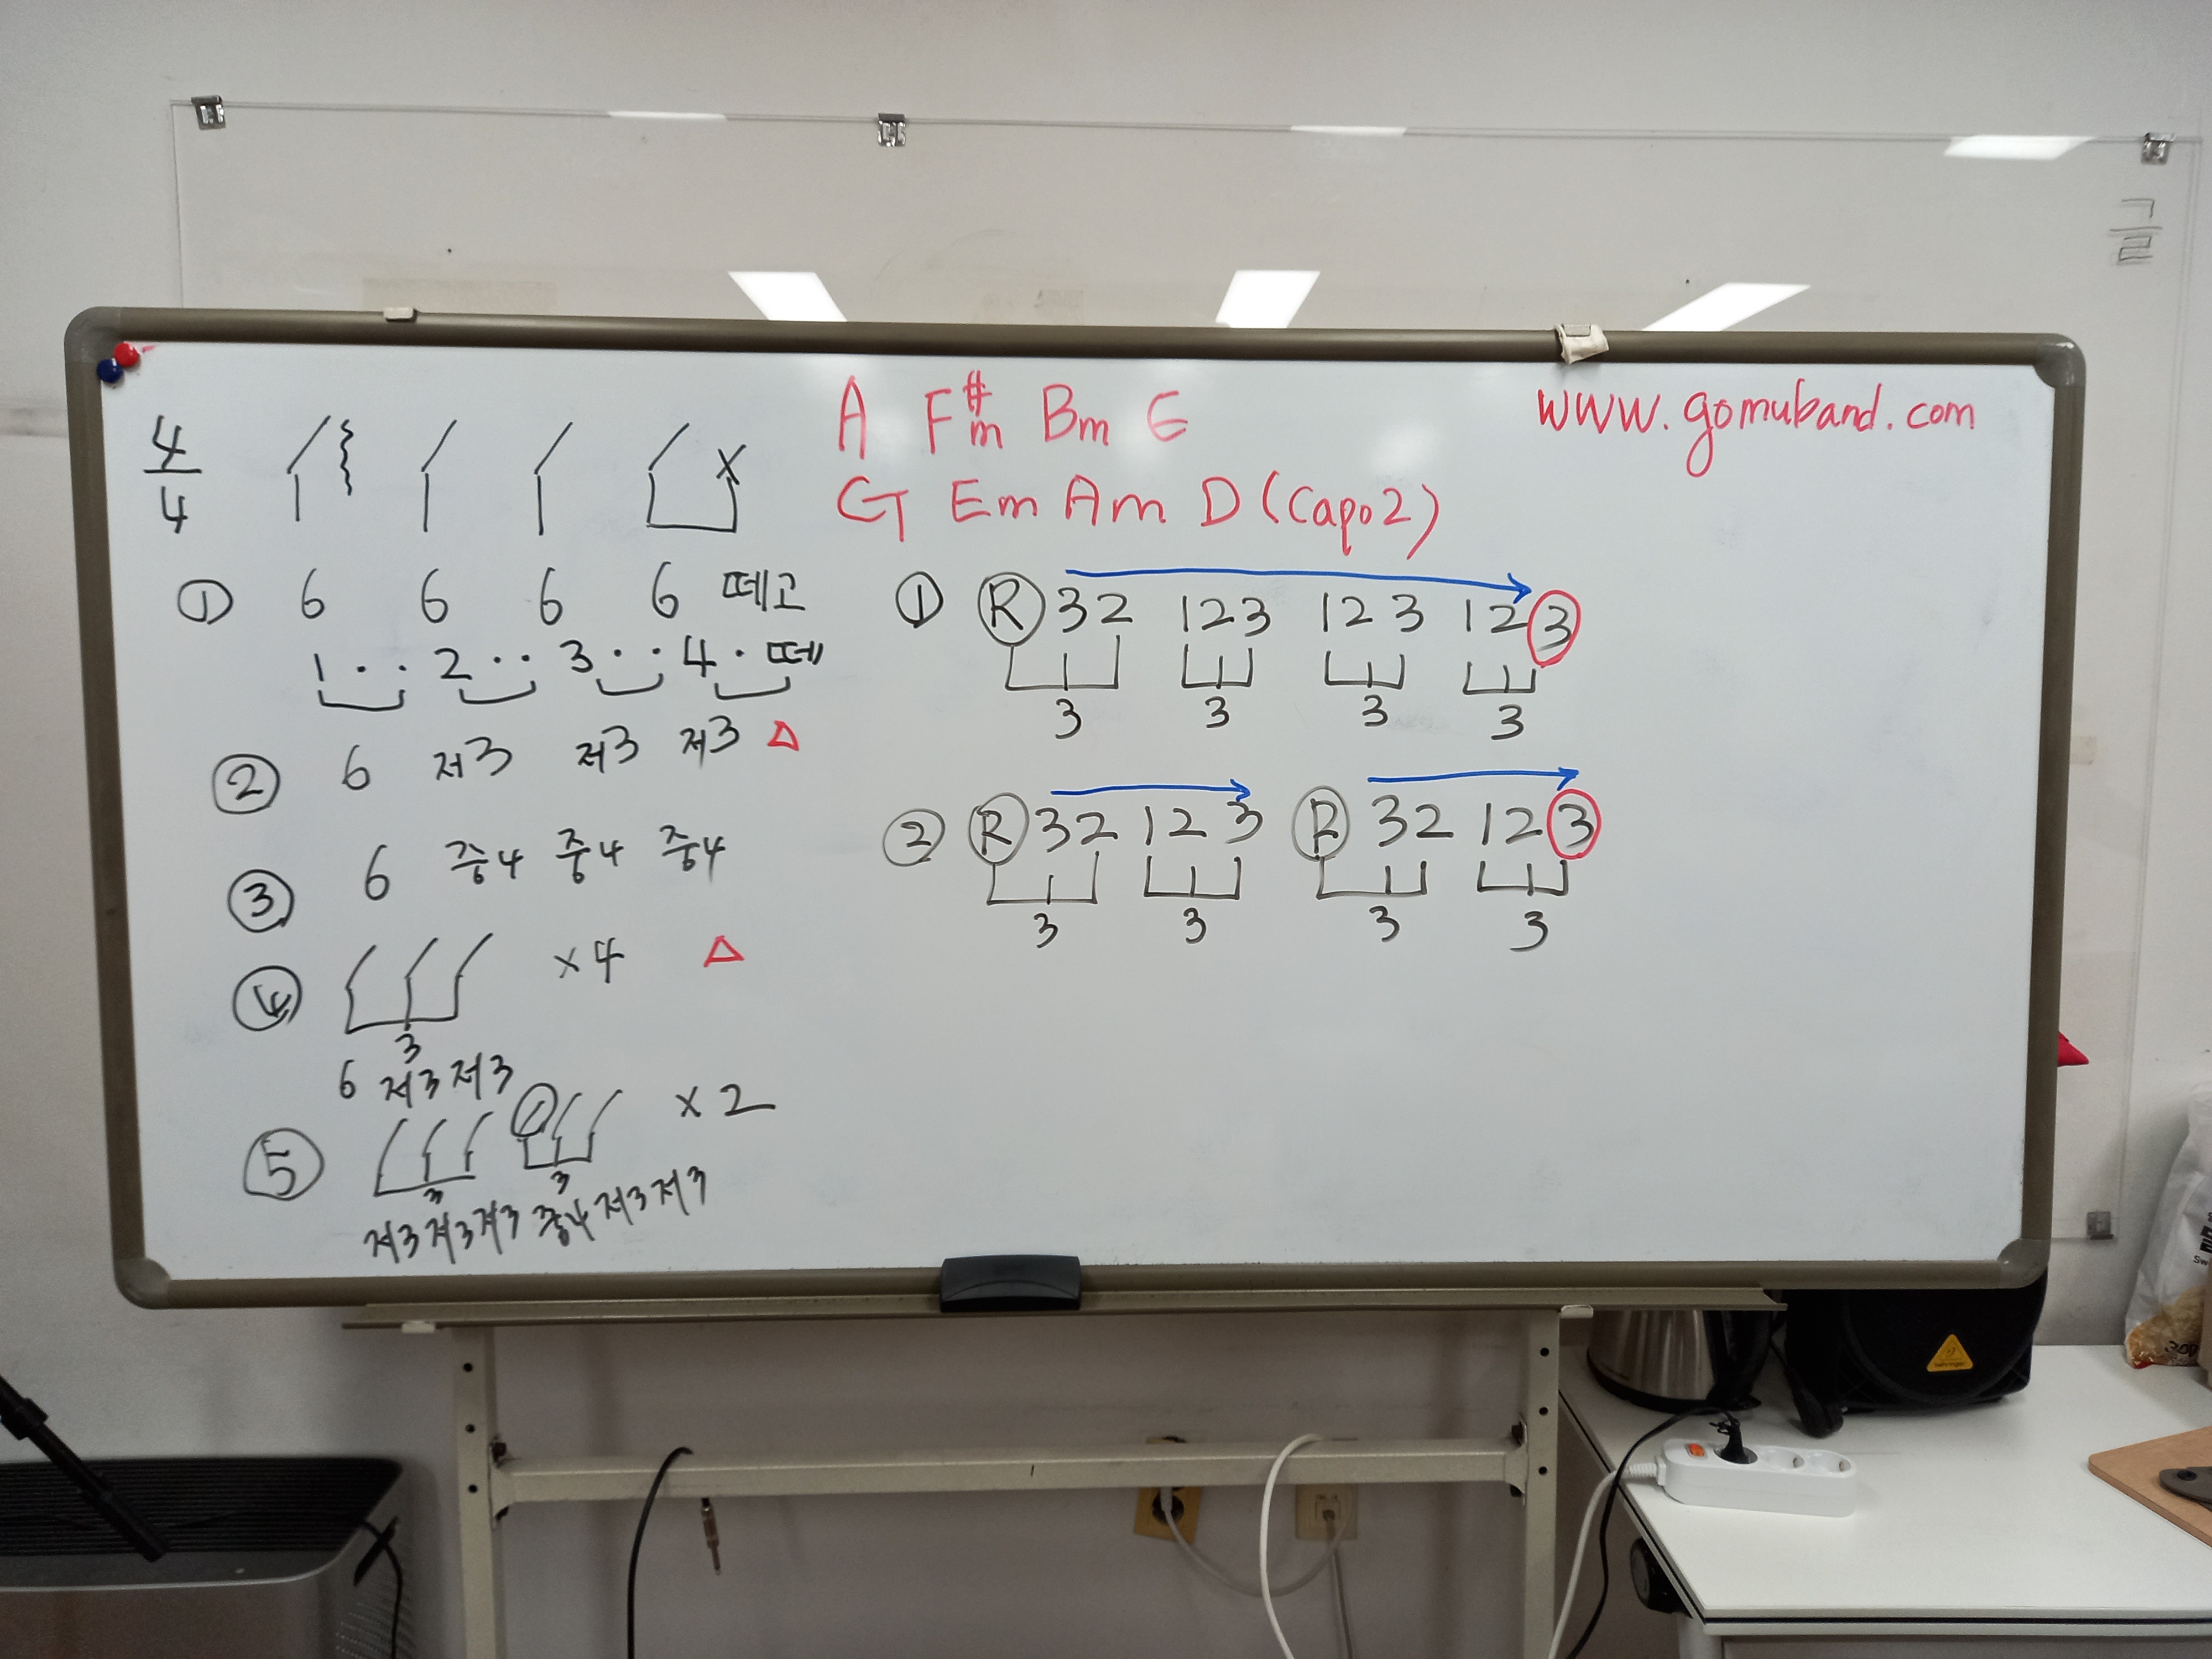 4/4 X
① 6 6 6 6 떼고
1 · · 2 · · 3 · · 4 · 떼
② 6 저3 저3 저3 △
③ 6 중4 중4 중4
④ ×4 △
3
6 저3 저3
⑤ ×2
3 3
저3 저3 저3 중4 저3 저3
A F#m Bm E
G Em Am D (Capo2)
① R 3 2 1 2 3 1 2 3 1 2 3
3 3 3 3
② R 3 2 1 2 3 R 3 2 1 2 3
3 3 3 3
www.gomuband.com
글
behringer